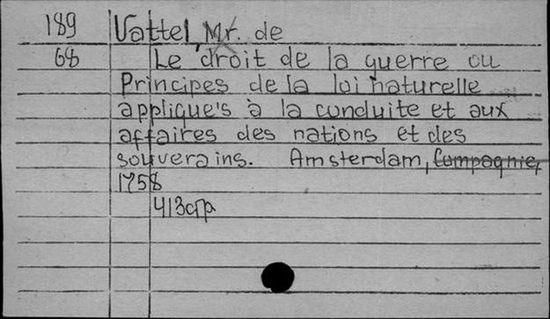 189 Vattel, Mr. de
68 Le droit de la guerre ou
Principes de la loi naturelle
applique's à la conduite et aux
affaires des nations et des
souverains. Amsterdam, Compagnie,
1758
413cтр